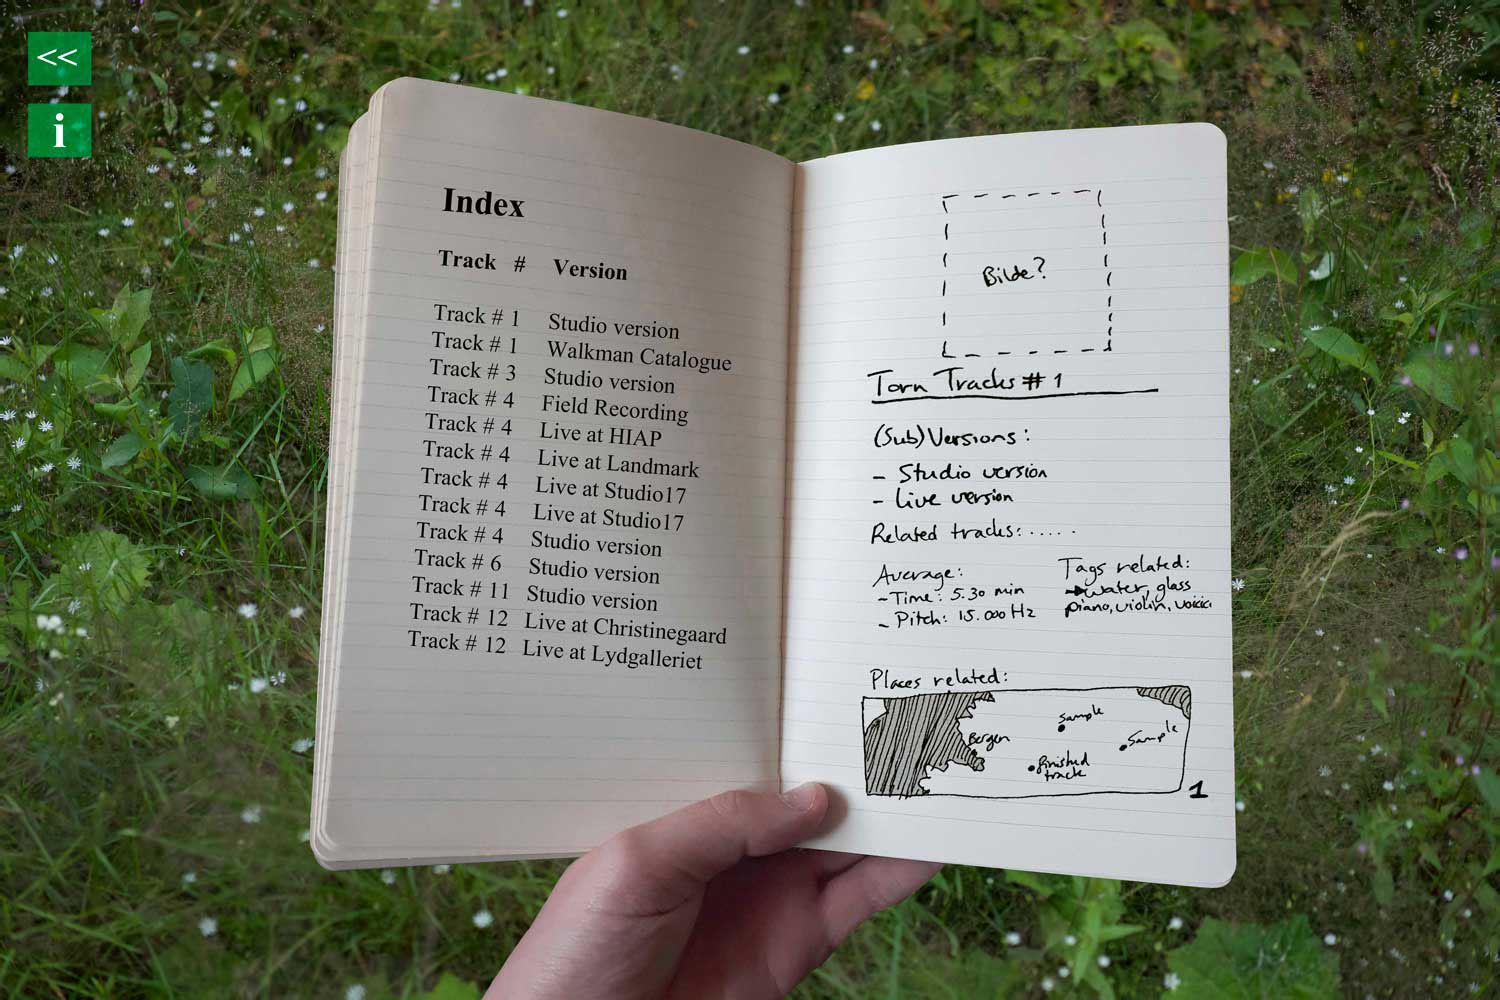 <<
i
Index
Track # Version
Track # 1 Studio version
Track # 1 Walkman Catalogue
Track # 3 Studio version
Track # 4 Field Recording
Track # 4 Live at HIAP
Track # 4 Live at Landmark
Track # 4 Live at Studio17
Track # 4 Live at Studio17
Track # 4 Studio version
Track # 6 Studio version
Track # 11 Studio version
Track # 12 Live at Christinegaard
Track # 12 Live at Lydgalleriet
Bilde?
Torn Tracks # 1
(Sub)Versions:
- Studio version
- Live version
Related tracks: .....
Average:
- Time: 5.30 min
- Pitch: 15.000 Hz
Tags related:
water, glass
piano, violin,
Places related:
Bergen
Sample
Sample
Finished
track
1